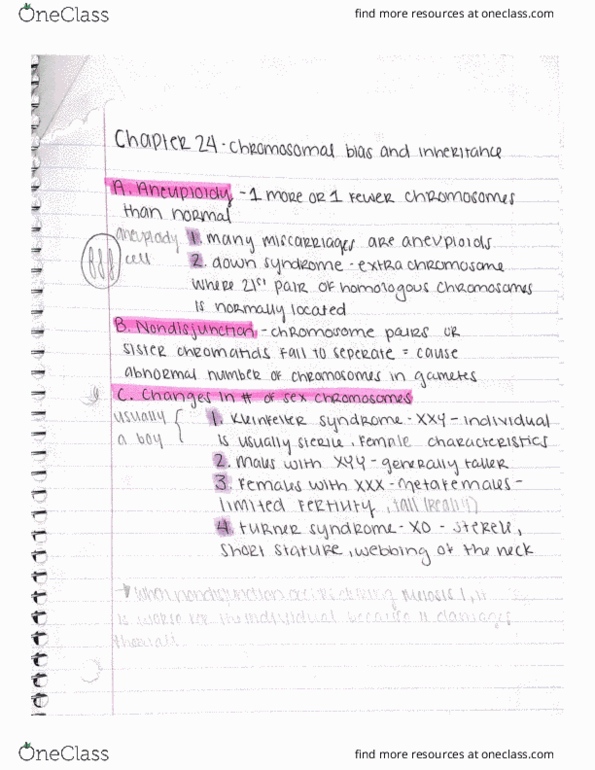 OneClass
find more resources at oneclass.com
Chapter 24 - chromosomal bias and inheritance
A. Aneuploidy - 1 more or 1 fewer chromosomes
than normal
aneuplody 1. many miscarriages are aneuploids
cell 2. down syndrome - extra chromosome
where 21st pair of homologous chromosomes
is normally located
B. Nondisjunction - chromosome pairs or
sister chromatids fail to seperate = cause
abnormal number of chromosomes in gametes
C. Changes in # of sex chromosomes
usually 1. Kleinfelter syndrome - XXY - individual
a boy is usually sterile, female characteristics
2. Males with XYY - generally taller
3. Females with XXX - metafemales -
limited fertility, tall
4. turner syndrome - XO - sterele,
short stature, webbing of the neck
→ when nondisjunction occurs during meiosis 1, it
is worse for the individual because it damages
them all
OneClass
find more resources at oneclass.com